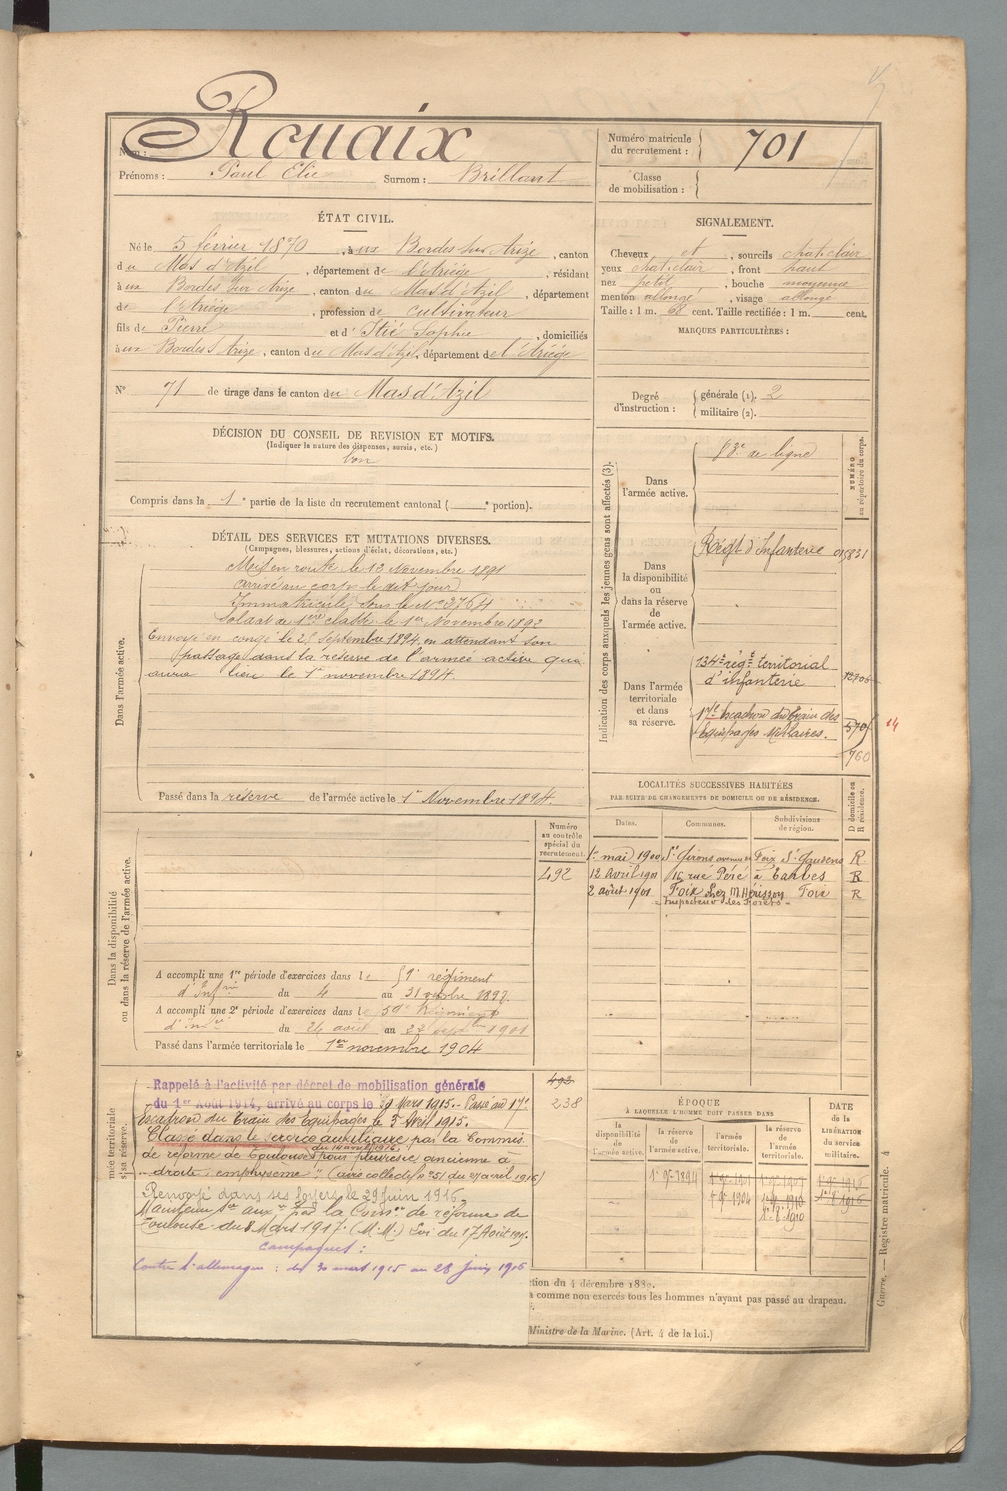 Rouaix
Nom :
Prénoms : Paul Elie Surnom : Brillant
Numéro matricule du recrutement : 701
Classe de mobilisation :
ÉTAT CIVIL.
Né le 5 février 1870, à ux Bordes sur Arize, canton
du Mas d'Azil, département de l'Ariège, résidant
à ux Bordes sur Arize, canton du Mas d'Azil, département
de l'Ariège, profession de cultivateur
fils de Pierre et d' Itié Sophie, domiciliés
à ux Bordes s Arize, canton du Mas d'Azil, département de l'Ariège
N° 71 de tirage dans le canton du Mas d'Azil
SIGNALEMENT.
Cheveux et, sourcils chat. clair
yeux chat. clair, front haut
nez petit, bouche moyenne
menton allongé, visage allongé
Taille : 1 m. 68 cent. Taille rectifiée : 1 m. cent.
MARQUES PARTICULIÈRES :
Degré d'instruction : générale (1). 2
militaire (2).
DÉCISION DU CONSEIL DE REVISION ET MOTIFS.
(Indiquer la nature des dispenses, sursis, etc.)
bon
Compris dans la 1e partie de la liste du recrutement cantonal ( e portion).
DÉTAIL DES SERVICES ET MUTATIONS DIVERSES.
(Campagnes, blessures, actions d'éclat, décorations, etc.)
Dans l'armée active.
Mis en route le 13 Novembre 1891
arrivé au corps le dit jour
Immatriculé sous le N° 3764
Soldat de 1ère classe le 1er Novembre 1892
Envoyé en congé le 25 Septembre 1894 en attendant son
passage dans la réserve de l'armée active qui
aura lieu le 1er novembre 1894.
Passé dans la réserve de l'armée active le 1er Novembre 1894.
Indication des corps auxquels les jeunes gens sont affectés (3).
NUMÉRO au répertoire du corps.
Dans l'armée active.
83e de ligne
Dans la disponibilité ou dans la réserve de l'armée active.
Régt d'Infanterie
Dans l'armée territoriale et dans sa réserve.
134e régt territorial
d'infanterie
17e Escadron du Train des
Equipages Militaires.
760
14
LOCALITÉS SUCCESSIVES HABITÉES
PAR SUITE DE CHANGEMENTS DE DOMICILE OU DE RÉSIDENCE.
D domicile ou R résidence.
Dates. Communes. Subdivisions de région.
1er mai 1900 St Girons St Gaudens R
12 Avril 1901 16 rue Péré à Tarbes R
2 août 1901 Foix chez M. Hérisson Foix R
Inspecteur des Forêts
Numéro au contrôle spécial du recrutement.
492
Dans la disponibilité ou dans la réserve de l'armée active.
A accompli une 1re période d'exercices dans le régiment
d'Infrie du 4 au 31 octobre 1897.
A accompli une 2e période d'exercices dans le 59e Régiment
du 26 au 1901
Passé dans l'armée territoriale le 1er novembre 1904
492
238
Rappelé à l'activité par décret de mobilisation générale
du 1er Août 1914, arrivé au corps le Mars 1915. - Passé au 17e
Escadron du Train des Equipages le 3 Avril 1915.
Classé dans le service auxiliaire par la Commis.
de réforme de Toulouse du 14 avril 1916 pour pleurésie ancienne à
droite, emphysème" (avis collectif n° 51 du 27 avril 1916)
Renvoyé dans ses foyers le 29 juin 1916.
Maintenu Sce auxre par la Comon de réforme de
Toulouse du 8 Mars 1917. (M.M.) Loi du 17 Août
Campagnes :
Contre l'allemagne : du 30 mars 1915 au 28 juin 1916
ÉPOQUE
À LAQUELLE L'HOMME DOIT PASSER DANS
la disponibilité de l'armée active. la réserve de l'armée active. l'armée territoriale. la réserve de l'armée territoriale.
DATE de la LIBÉRATION du service militaire.
1er 9bre 1894
tion du 4 décembre 1889.
a comme non exercés tous les hommes n'ayant pas passé au drapeau.
Ministre de la Marine. (Art. 4 de la loi.)
Guerre. — Registre matricule. 4